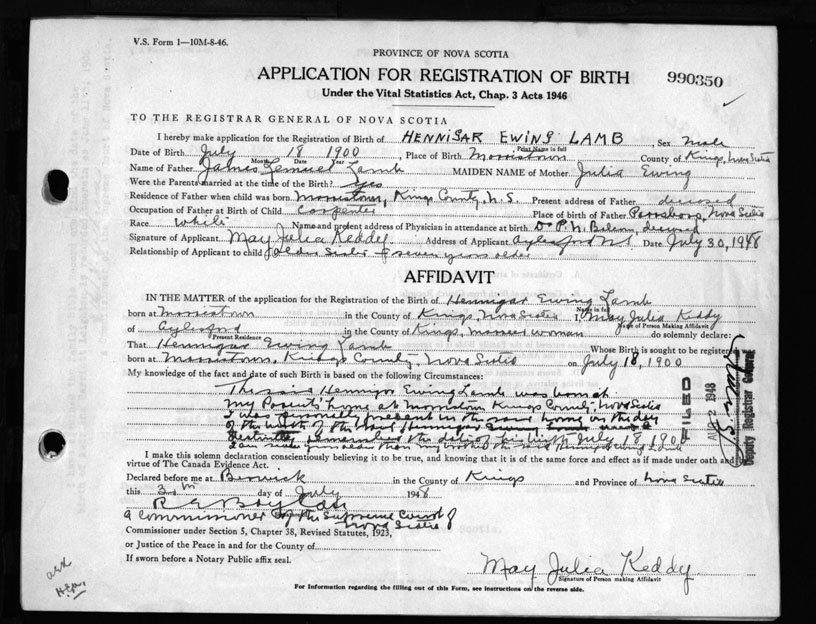 V.S. Form 1—10M-8-46.
PROVINCE OF NOVA SCOTIA
APPLICATION FOR REGISTRATION OF BIRTH 990350
Under the Vital Statistics Act, Chap. 3 Acts 1946
TO THE REGISTRAR GENERAL OF NOVA SCOTIA
I hereby make application for the Registration of Birth of HENNIGAR EWING LAMB, Sex male
Print Name in full
Date of Birth July 18 1900, Place of Birth Morristown, County of Kings, Nova Scotia
Month Date Year
Name of Father James Lemuel Lamb MAIDEN NAME of Mother Julia Ewing
Were the Parents married at the time of the Birth? Yes
Residence of Father when child was born Morristown, Kings County, N.S. Present address of Father deceased
Occupation of Father at Birth of Child carpenter Place of birth of Father Parrsboro, Nova Scotia
Race white Name and present address of Physician in attendance at birth Dr P. N. deceased
Signature of Applicant May Julia Keddy Address of Applicant Aylesford N.S. Date July 30, 1948
Relationship of Applicant to child Older Sister seven years older
AFFIDAVIT
IN THE MATTER of the application for the Registration of the Birth of Hennigar Ewing Lamb
Name in full
born at Morristown in the County of Kings, Nova Scotia I, May Julia Keddy
Name of Person Making Affidavit
of Aylesford in the County of Kings, married woman do solemnly declare:
Present Residence
That Hennigar Ewing Lamb Whose Birth is sought to be registered
born at Morristown, Kings County, Nova Scotia on July 18, 1900
My knowledge of the fact and date of such Birth is based on the following Circumstances:
The said Hennigar Ewing Lamb was born at
my Parents' home at Morristown Kings County Nova Scotia
I was personally present in the said home on the day
of the birth of the said Hennigar Ewing
remember the date of his birth July 18 1900
I am seven years older than my brother the said Hennigar Ewing Lamb
FILED
AUG 2 1948
Deputy Registrar General
I make this solemn declaration conscientiously believing it to be true, and knowing that it is of the same force and effect as if made under oath and by
virtue of The Canada Evidence Act.
Declared before me at Berwick in the County of Kings and Province of Nova Scotia
this 30th day of July 1948
A Commissioner of the Supreme Court of
Nova Scotia
Commissioner under Section 5, Chapter 38, Revised Statutes, 1923,
or Justice of the Peace in and for the County of
If sworn before a Notary Public affix seal.
May Julia Keddy
Signature of Person making Affidavit
For Information regarding the filling out of this Form, see instructions on the reverse side.